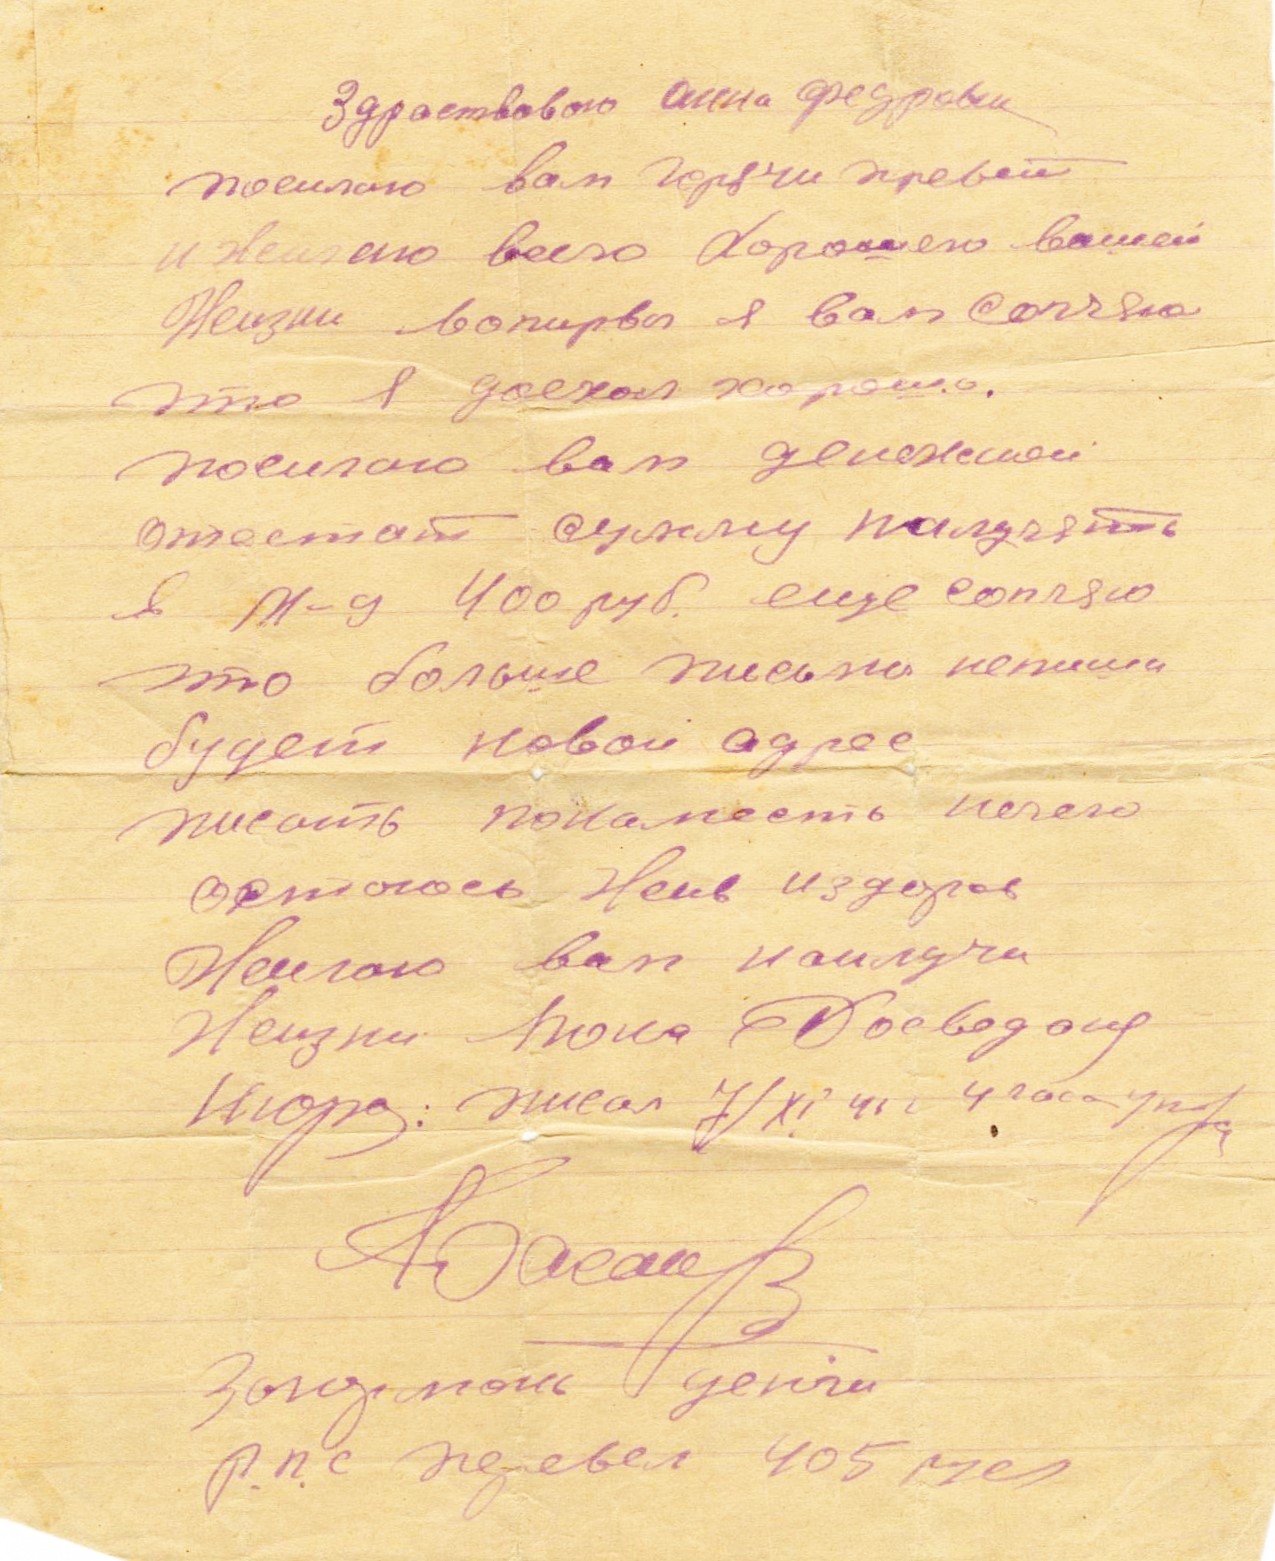 Здраствовою анна Федровна
посилаю вам горячи превет
и желгаю всего хорошего вашей
Жизни вопирвы я вам сопчяю
што я доехал хорошо.
посилаю вам денежной
отестат сумму палучять
в м-д 400 руб. еще сопчяю
что больше письма непиши
будет новой адрес
писать покаместь нечего
остаюсь Жив издоров
Желаю вам наилучи
Жизни Пока Досведаня
Шюра: писал 7/XI 41 г 4 часа утра
АБасан
денги
р.п.с перевел 405 руб